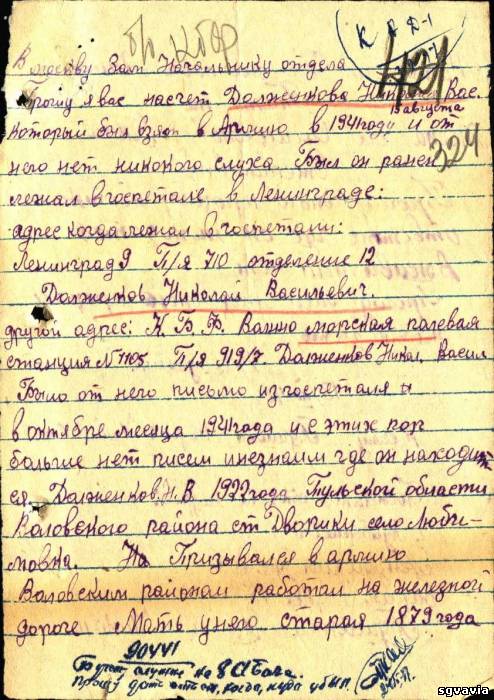 К Д-1
В москву Зам. Начальнику отдела
Прошу я вас насчет Долженкова Николая Вас.
15 августа
который был взят в Армию в 1941году и от
него нет никокого слуха Был он ранен
324
лежал в госпетале, в Ленинграде:
адрес когда лежал в госпетали:
Ленинград 9 П/я 710 отделение 12
Долженков Николай Васильевич.
другой адрес: К. Б. Ф. Важно морская полевая
станция № 1105 П/я 919/7. Долженков Никол. Васил
Было от него письмо из госпеталя
в октябре месяца 1941года и с этих пор
больше нет писем и незнаим где он находит
ся. Долженков. Н. В. 1922 года Тульской области
Воловского района ст Дворики село Люби-
мовка. Призывался в армию
Воловским районам работал на железной
дороге Мать у няго старая 1879 года
Прошу дать ответ, когда, куда убыл
sgvavia